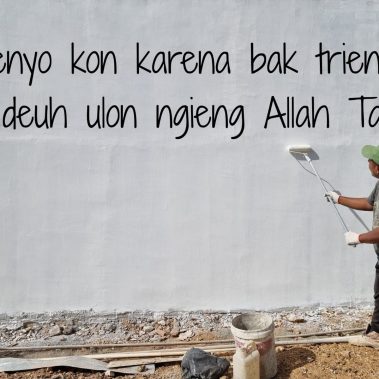 enyo kon karena bak trien
deuh ulon ngieng Allah Ta